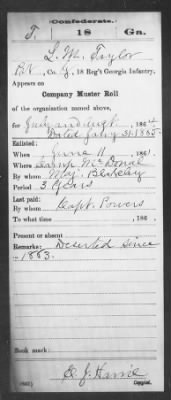 Confederate.
T. 18 Ga.
L. M. Taylor
Pvt, Co. G, 18 Reg't Georgia Infantry.
Appears on
Company Muster Roll
of the organization named above,
for July and Aug, 1864
Dated Jany 31, 1865.
Enlisted:
When June 11, 1861.
Where Camp McDonald
By whom Maj. Blakeley
Period 3 Years
Last paid:
By whom Capt. Powers
To what time , 186 .
Present or absent
Remarks: Deserted since
1863.
Book mark:
(642)
Copyist.